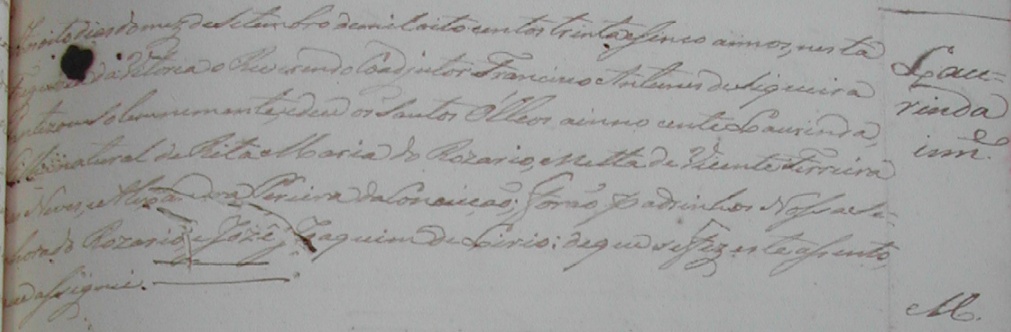 Aos oito dias do mez de Setembro de mil oito centos trinta e sinco annos, nesta
da Vitoria o Reverendo Coadjutor Francisco Antunes de Siqueira
baptizou solennemente, e deu os Santos Olleos a innocente Laurinda,
natural de Rita Maria do Rozario, Netta de Vicente Ferreira
Neves, e Alexandra Pereira da Conceição; forão Padrinhos Nossa Se-
nhora do Rozario, e Jozé Joaquim de Lirio: de que se fez este assento,
que assignei.
Lau-
rinda
inn.e
M.